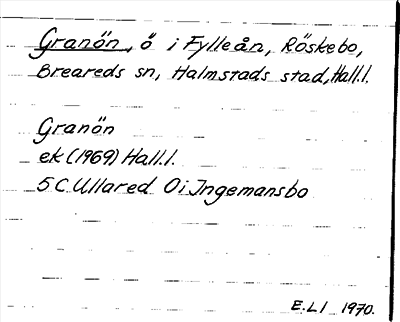 Granön, ö i Fylleån, Röskebo,
Breareds sn, Halmstads stad, Hall.l.
Granön
ek (1969) Hall.l.
5 C Ullared O i Ingemansbo
E.L1 1970.